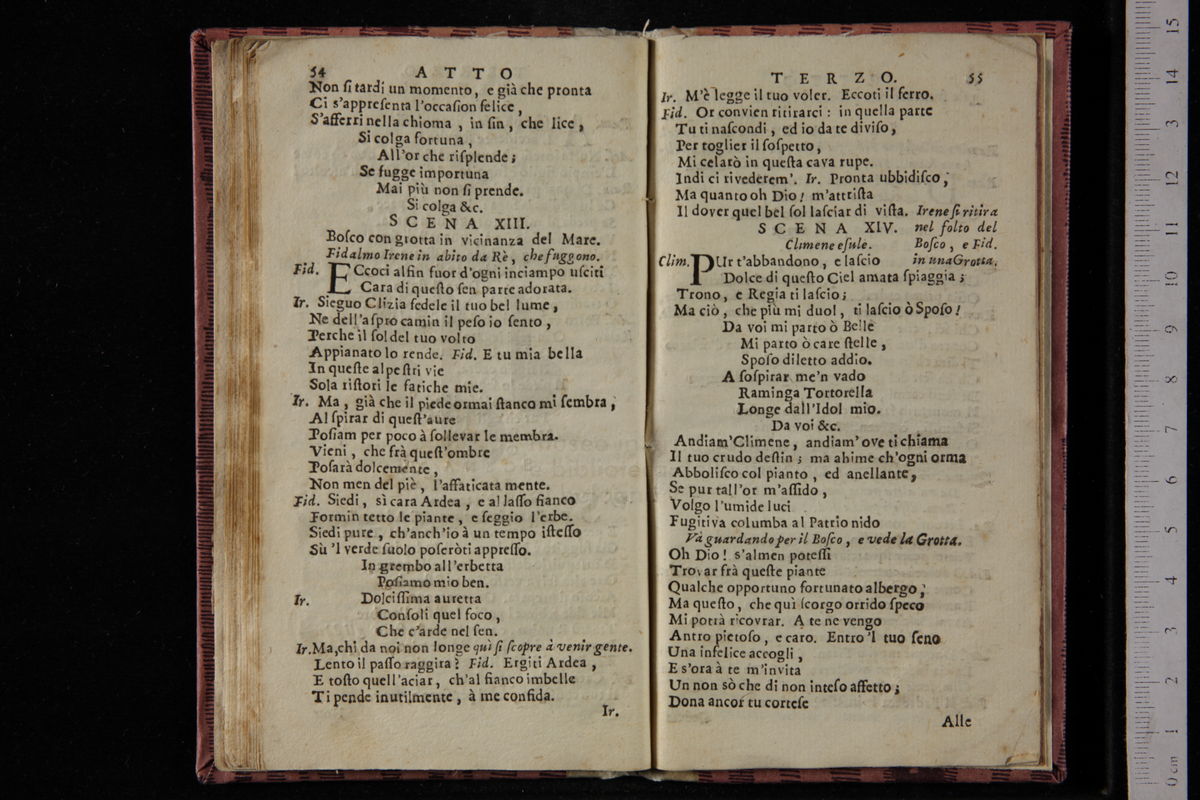 54 ATTO
Non ſi tardi un momento, e già che pronta
Ci s'appreſenta l'occaſion felice,
S'afferri nella chioma, in fin, che lice,
Si colga fortuna,
All'or che riſplende;
Se fugge importuna
Mai più non ſi prende.
Si colga &c.
SCENA XIII.
Boſco con grotta in vicinanza del Mare.
Fidalmo Irene in abito da Rè, che fuggono.
Fid. ECcoci alfin fuor d'ogni inciampo uſciti
Cara di queſto ſen parte adorata.
Ir. Sieguo Clizia fedele il tuo bel lume,
Ne dell'aſpro camin il peſo io ſento,
Perche il ſol del tuo volto
Appianato lo rende. Fid. E tu mia bella
In queſte alpeſtri vie
Sola riſtori le fatiche mie.
Ir. Ma, già che il piede ormai ſtanco mi ſembra,
Al ſpirar di queſt'aure
Poſiam per poco à ſollevar le membra.
Vieni, che frà queſt'ombre
Poſarà dolcemente,
Non men del piè, l'affaticata mente.
Fid. Siedi, sì cara Ardea, e al laſſo fianco
Formin tetto le piante, e ſeggio l'erbe.
Siedi pure, ch'anch'io à un tempo iſteſſo
Sù 'l verde ſuolo poſeròti appreſſo.
In grembo all'erbetta
Poſiamo mio ben.
Ir. Dolciſſima auretta
Conſoli quel foco,
Che c'arde nel ſen.
Ir. Ma, chi da noi non longe quì ſi ſcopre à venir gente.
Lento il paſſo raggira? Fid. Ergiti Ardea,
E toſto quell'aciar, ch'al fianco imbelle
Ti pende inutilmente, à me confida.
Ir.
TERZO. 55
Ir. M'è legge il tuo voler. Eccoti il ferro.
Fid. Or convien ritirarci: in quella parte
Tu ti naſcondi, ed io da te diviſo,
Per toglier il ſoſpetto,
Mi celarò in queſta cava rupe.
Indi ci rivederem'. Ir. Pronta ubbidiſco,
Ma quanto oh Dio! m'attriſta
Il dover quel bel ſol laſciar di viſta. Irene ſi ritira
SCENA XIV. nel folto del
Climene eſule. Boſco, e Fid.
Clim. PUr t'abbandono, e laſcio in una Grotta.
Dolce di queſto Ciel amata ſpiaggia;
Trono, e Regia ti laſcio;
Ma ciò, che più mi duol, ti laſcio ò Spoſo!
Da voi mi parto ò Belle
Mi parto ò care ſtelle,
Spoſo diletto addio.
A ſoſpirar me'n vado
Raminga Tortorella
Longe dall'Idol mio.
Da voi &c.
Andiam' Climene, andiam' ove ti chiama
Il tuo crudo deſtin; ma ahime ch'ogni orma
Abboliſco col pianto, ed anellante,
Se pur tall'or m'aſſido,
Volgo l'umide luci
Fugitiva columba al Patrio nido
Và guardando per il Boſco, e vede la Grotta.
Oh Dio! s'almen poteſſi
Trovar frà queſte piante
Qualche opportuno fortunato albergo;
Ma queſto, che quì ſcorgo orrido ſpeco
Mi potrà ricovrar. A te ne vengo
Antro pietoſo, e caro. Entro 'l tuo ſeno
Una infelice accogli,
E s'ora à te m'invita
Un non sò che di non inteſo affetto;
Dona ancor tu corteſe
Alle
0 cm 1 2 3 4 5 6 7 8 9 10 11 12 13 14 15